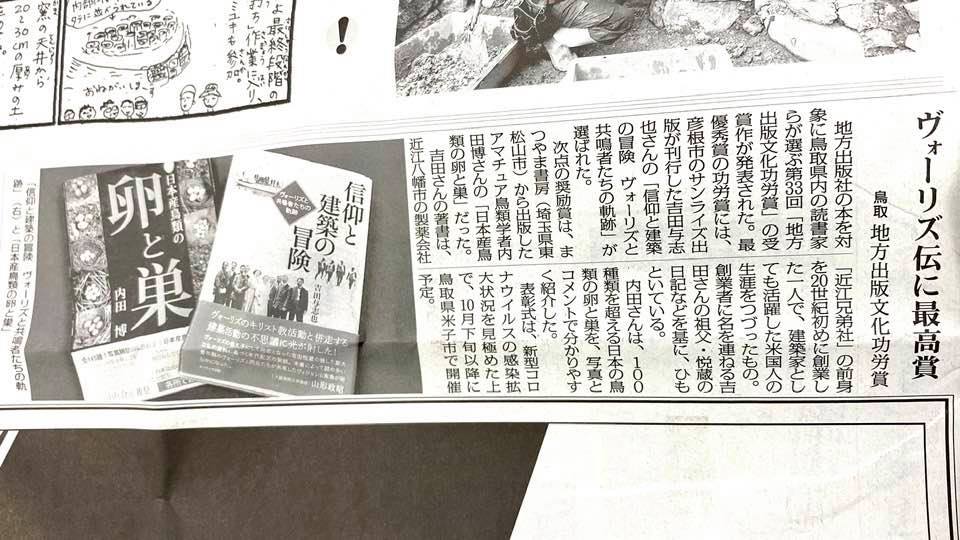 ヴォーリズ伝に最高賞
鳥取 地方出版文化功労賞
地方出版社の本を対
象に鳥取県内の読書家
らが選ぶ第33回「地方
出版文化功労賞」の受
賞作が発表された。最
優秀賞の功労賞には、
彦根市のサンライズ出
版が刊行した吉田与志
也さんの「信仰と建築
の冒険 ヴォーリズと
共鳴者たちの軌跡」が
選ばれた。
次点の奨励賞は、ま
つやま書房(埼玉県東
松山市)から出版した
アマチュア鳥類学者内
田博さんの「日本産鳥
類の卵と巣」だった。
吉田さんの著書は、
近江八幡市の製薬会社
「近江兄弟社」の前身
を20世紀初めに創業し
た一人で、建築家とし
ても活躍した米国人の
生涯をつづったもの。
創業者に名を連ねる吉
田さんの祖父・悦蔵の
日記などを基に、ひも
といている。
内田さんは、100
種類を超える日本の鳥
類の卵と巣を、写真と
コメントで分かりやす
く紹介した。
表彰式は、新型コロ
ナウイルスの感染拡
大状況を見極めた上
で、10月下旬以降に
鳥取県米子市で開催
予定。
信仰と
建築の
冒険
ヴォーリズと
共鳴者たちの
軌跡
吉田与志也
ヴォーリズのキリスト教活動と併走する
建築活動の不思議に光が射した!
山形政昭
日本産鳥類の
卵と巣
内田 博
「信仰と建築の冒険 ヴォーリズと共鳴者たちの軌
跡」(右)と「日本産鳥類の卵と巣」
!
最終段階の
作業に入り、
も参加。
窯の天井から
20〜30cmの厚サの土
おねがいしまーす